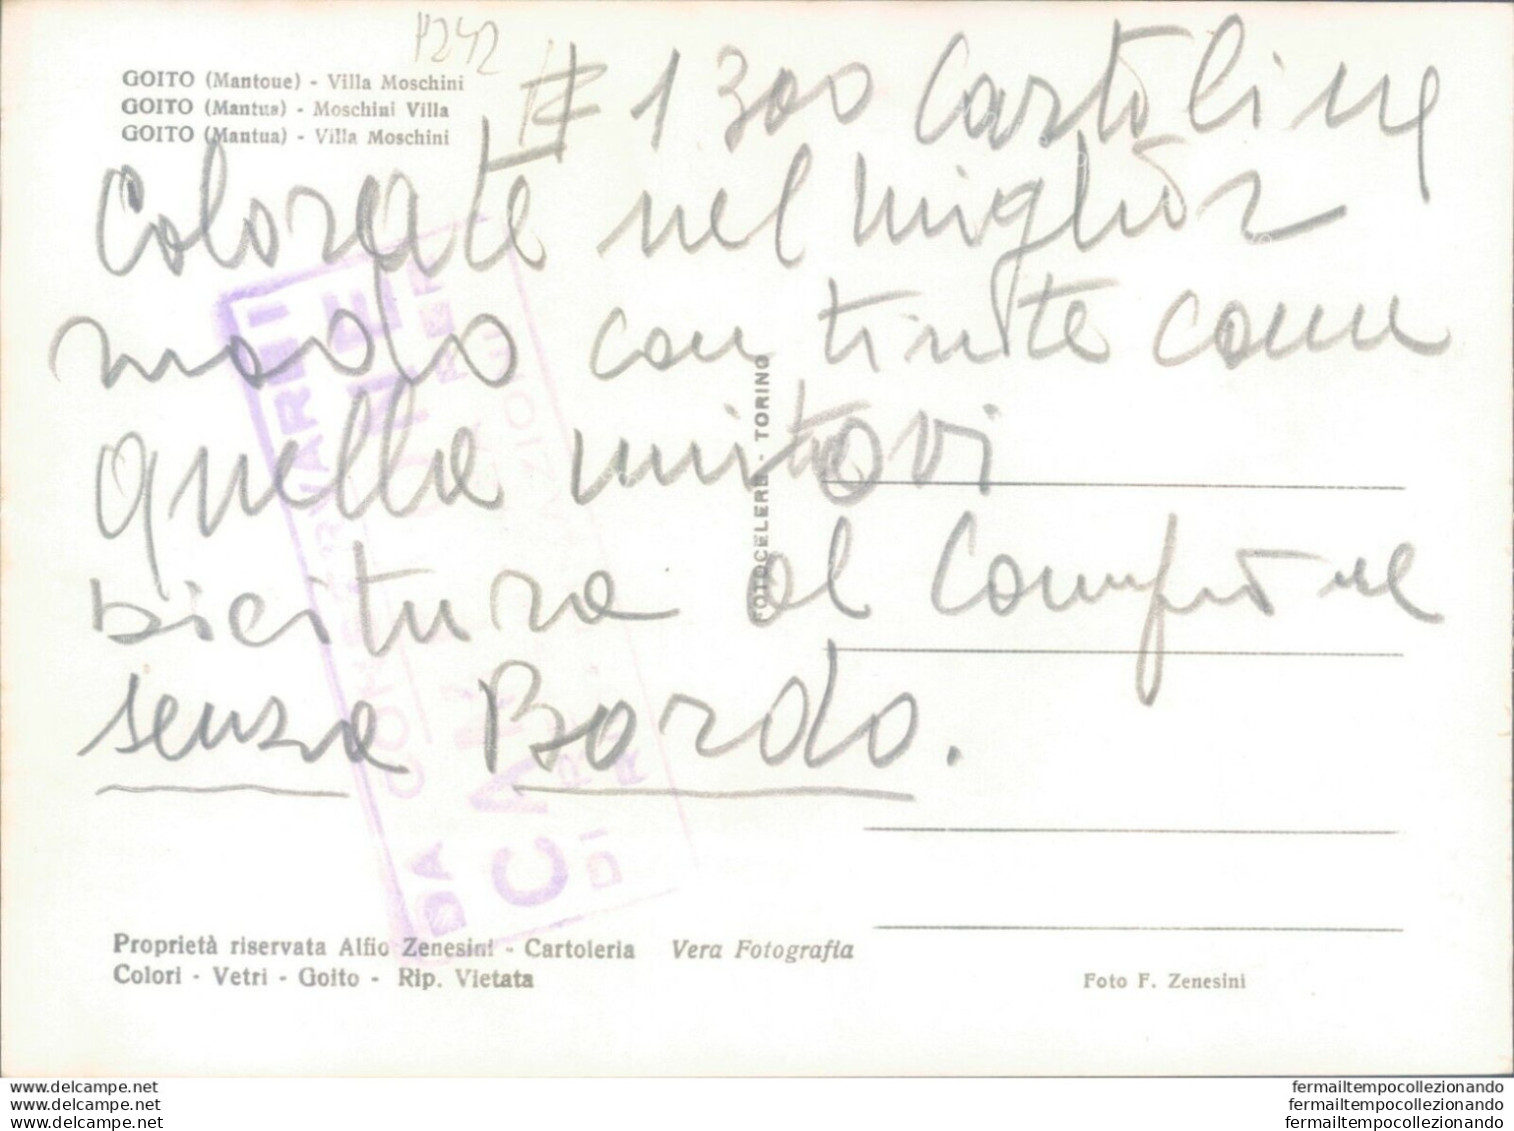 p242
GOITO (Mantoue) - Villa Moschini
GOITO (Mantua) - Moschini Villa
GOITO (Mantua) - Villa Moschini
1300 Cartoline
Colorate nel miglior
modo con tinte come
quella
dicitura al
senza Bordo.
FOTOCELERE - TORINO
DA CONSERVARE
DI
Proprietà riservata Alfio Zenesini - Cartoleria Vera Fotografia
Colori - Vetri - Goito - Rip. Vietata
Foto F. Zenesini
www.delcampe.net
www.delcampe.net
www.delcampe.net
fermailtempocollezionando
fermailtempocollezionando
fermailtempocollezionando